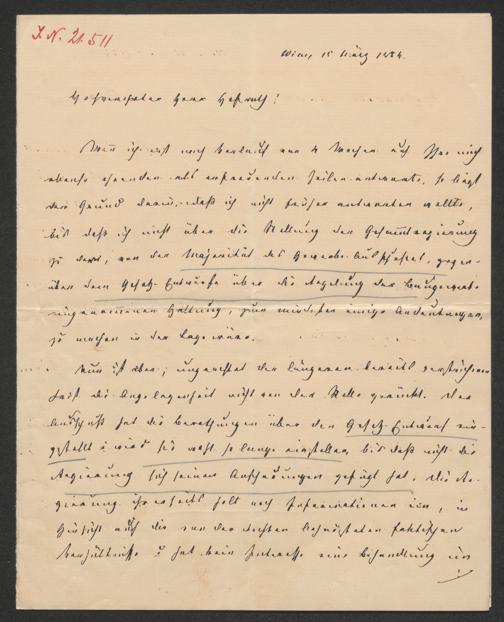 I. N. 21.511
Wien, 15 März 1884.
Hochverehrter Herr Hofrath!
Wenn ich erst nach Verlauf von 4 Wochen auf Ihre mich
ebenso ehrenden als erfreuenden Zeilen antworte, so liegt
der Grund darin, daß ich nicht früher antworten wollte,
bis daß ich nicht über die Stellung der Gesammtregierung
zu der, von der Majorität des Gewerbe-Ausschußes, gegen-
über dem Gesetz-Entwurfe über die Regelung der Baugewerbe
eingenommenen Haltung, zum mindesten einige Andeutungen
zu machen in der Lage wäre.
Nun ist aber, ungeachtet der längeren bereits verstrichenen
Zeit die Angelegenheit nicht von der Stelle gerückt. Der
Ausschuß hat die Berathungen über den Gesetz-Entwurf ein-
gestellt u wird sie wohl so lange einstellen, bis daß nicht die
Regierung sich seinen Anschauungen gefügt hat. Die Re-
gierung ihrerseits holt noch Informationen ein, in
Hinsicht auf die von der
Verhältnisse u hat kein Interesse eine Behandlung im